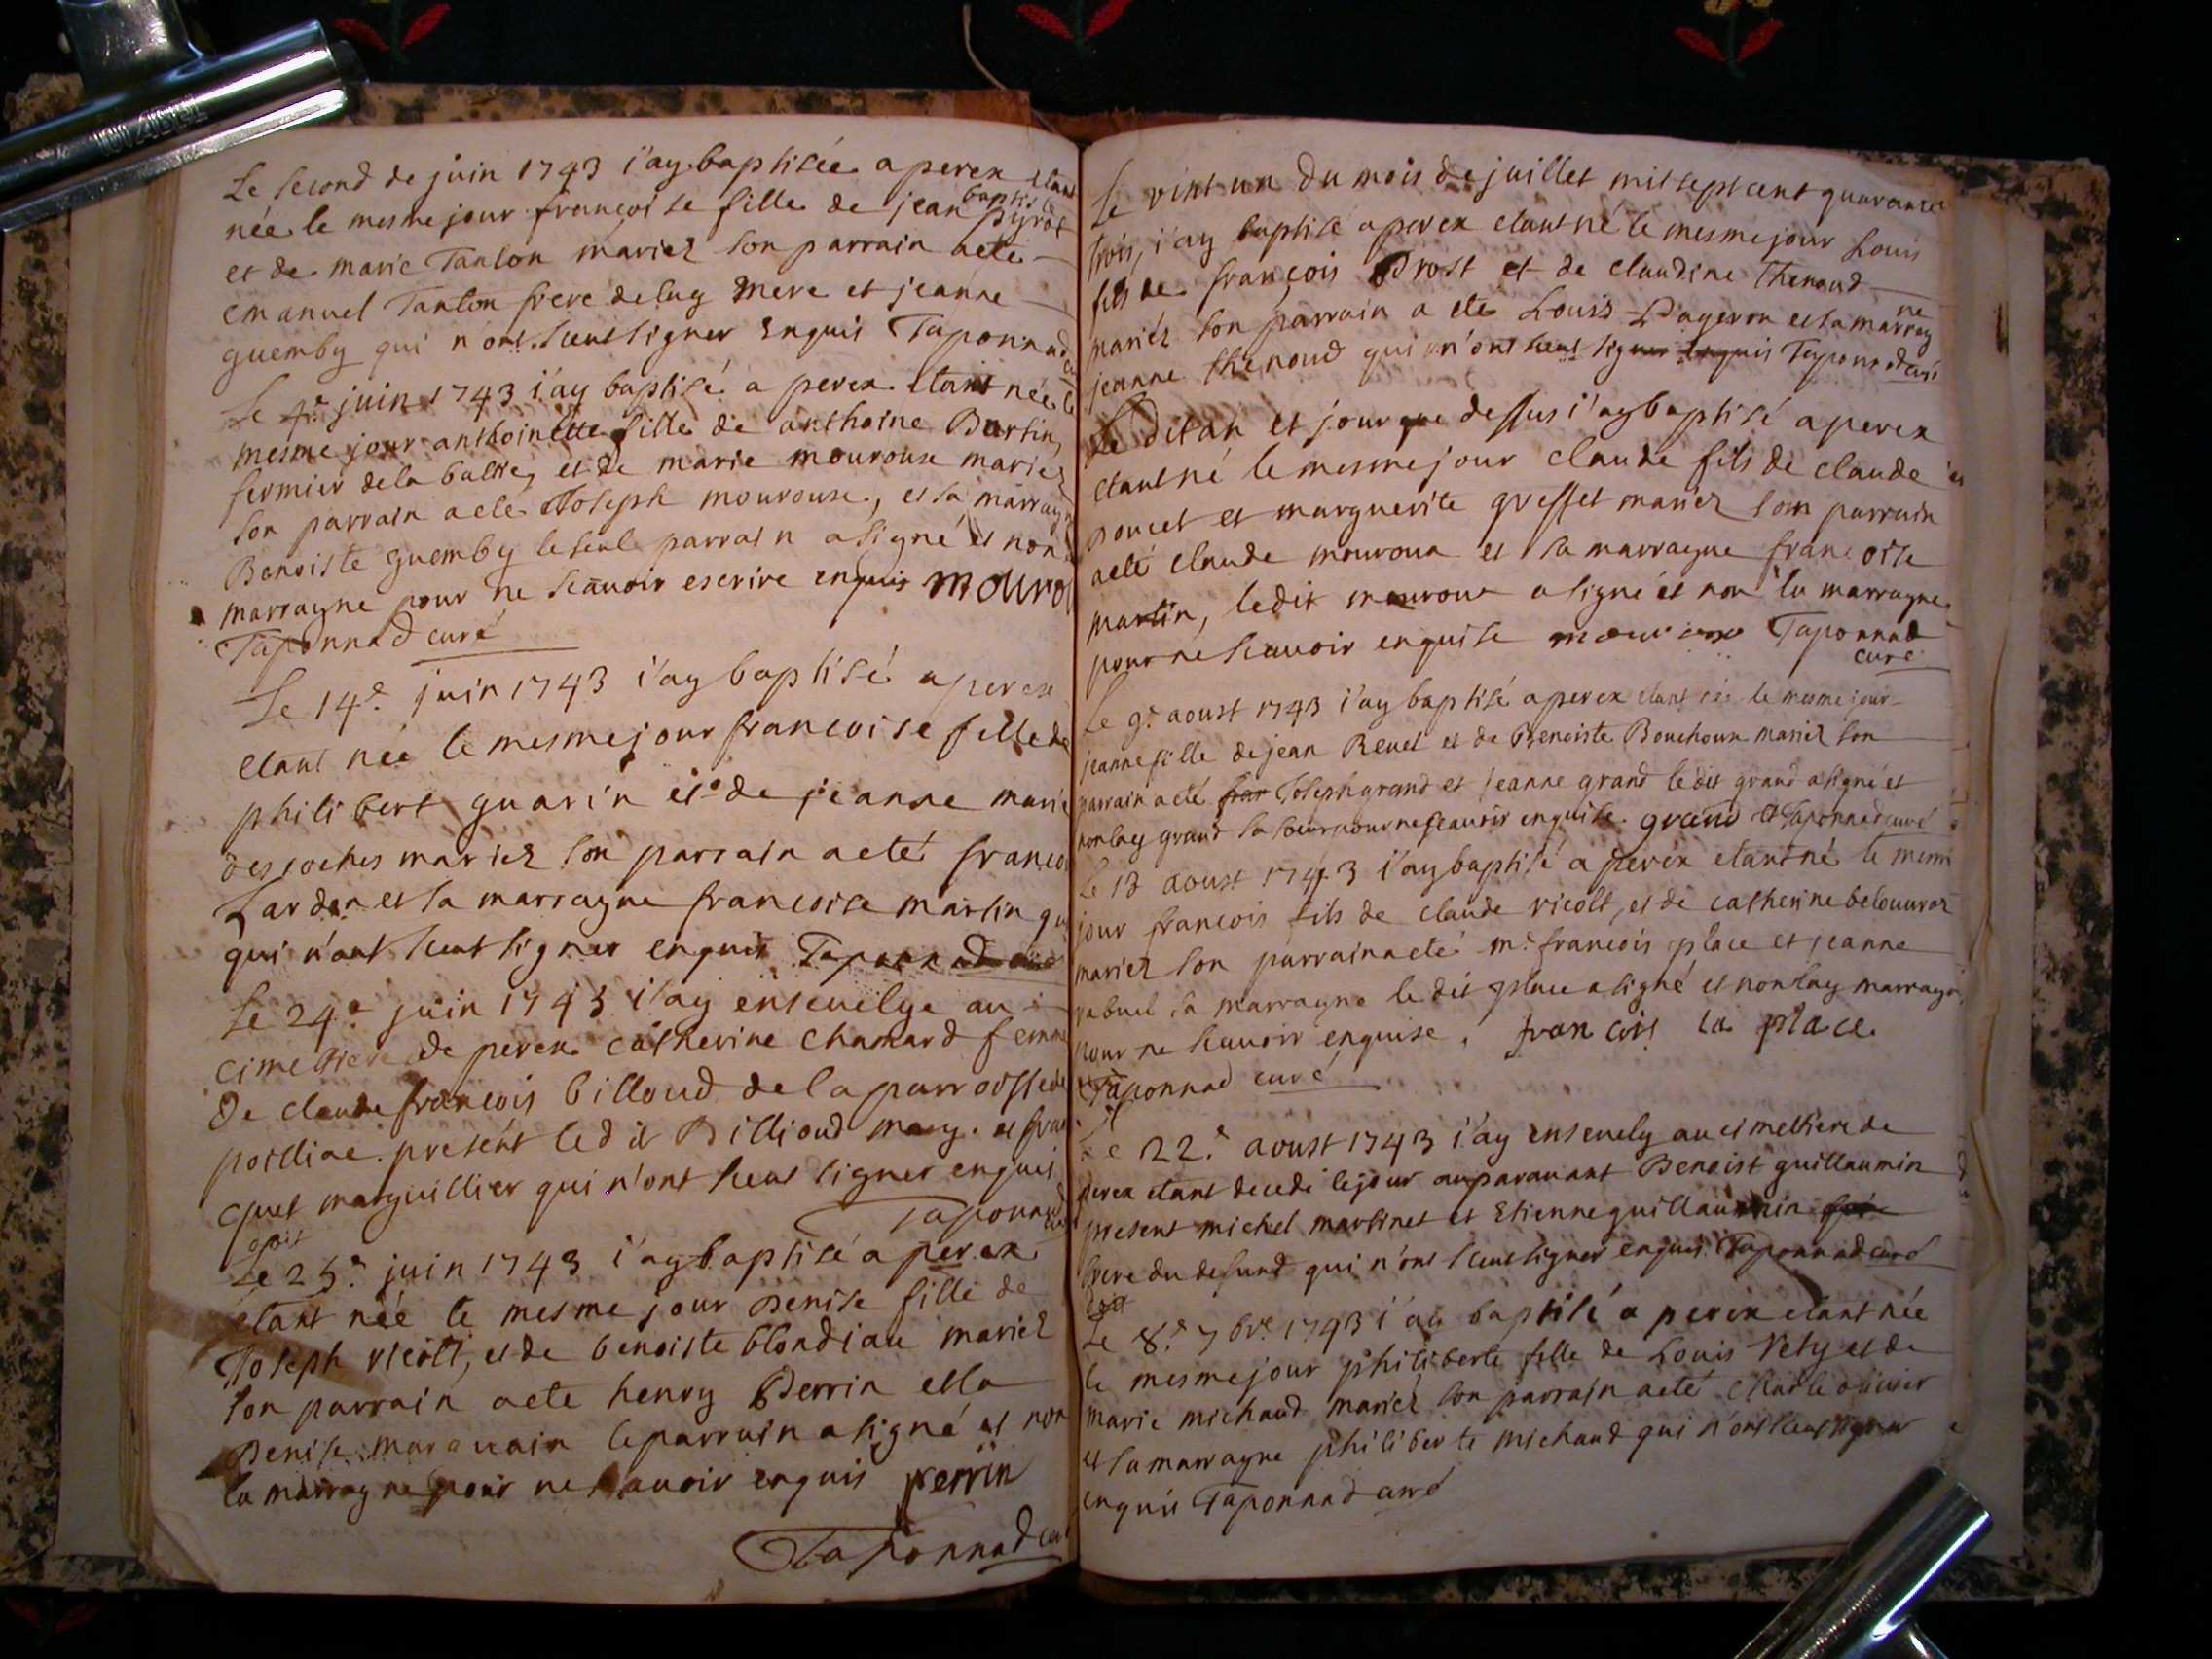 Le second de juin 1743 i'ay baptisée a perex etant
née le mesme jour françoise fille de jean baptiste pyrot
et de marie Tanton mariez son parrain a eté
emanuel Tanton frere de luy mere et jeanne
guemby qui n'ont sceut signer enquis Taponnad
Le 4e juin 1743 i'ay baptisé a perex etant née le
mesme jour anthoinette fille de anthoine Burtin,
fermier de la et de marie mourouse mariez
son parrain a eté Joseph mourouse, et sa marrayne
Benoiste guemby le seul parrain a signé et non
marrayne pour ne scauoir escrire enquis mouro
Taponnad curé
Le 14e juin 1743 i'ay baptisé a perex
etant née le mesme jour francoise fille de
philibert guarin et de jeanne marie
desroches mariez son parrain a eté francoi
Lardon et sa marrayne francoise martin qu
qui n'ont sceut signer enquis Taponnad curé
Le 24e juin 1743 i'ay enseuelye au
cimettiere de perex catherine chamard femme
de claude françois billoud de la parroisse de
polliac present led it Billioud mary et fran
quet marguillier qui n'ont sceut signer enquis
Taponnad
Le 25e juin 1743 i'ay baptisé a perex
etant née le mesme jour Denise fille de
Joseph ricolt, et de benoiste blondiau mariez
son parrain a eté henry Perrin et la
Denise maravain le parrain a signé et non
la marrayne pour ne scauoir enquis perrin
Taponnad cur
Le vint un du mois de juillet mil sept cent quarante
trois, i'ay baptisé a perex etant né le mesme jour Louis
fils de françois Prost et de claudine Thenoud
mariéz son parrain a eté Louis Pageron et sa marrayne
jeanne thenoud qui n'ont sceut signer enquis Taponnad curé
Le dit an et jour que dessus i'ay baptisé a perex
etant né le mesme jour claude fils de claude
poncet et marguerite greffet mariez son parrain
a eté claude mouroux et sa marrayne francoise
martin, ledit mouroux a signé et non la marrayne
pour ne scauoir enquise Taponnad
curé
Le 9e aoust 1743 i'ay baptisé a perex etant née le mesme jour
jeanne fille de jean Reuel et de Benoiste Bouchoux mariéz son
parrain a eté Joseph grand et jeanne grand le dit grand a signé et
non lay grand sa soeur pour ne scauoir enquise. grand Taponnad curé
Le 13 aoust 1743 i'ay baptisé a perex etant né le mesme
jour francois fils de claude ricolt, et de catherine belouuroz
mariez son parrain a eté me françois place et jeanne
rabuel sa marrayne le dit place a signé et non lay marrayne
pour ne scauoir enquise, francois la place
Taponnad curé
Le 22e aoust 1743 i'ay enseuely au cimettiere de
perex etant decedé le jour auparauant Benoist guillaumin
present michel martinet et Etienne guillaumin
frere du defund qui n'ont sceut signer enquis Taponnad curé
Le 8e 7bre 1743 i'ay baptisé a perex etant née
le mesme jour philiberte fille de Louis Vety et de
marie michaud mariéz son parrain a eté Charle oliuier
et sa marrayne philiberte michaud qui n'ont sceut signer
enquis Taponnad curé